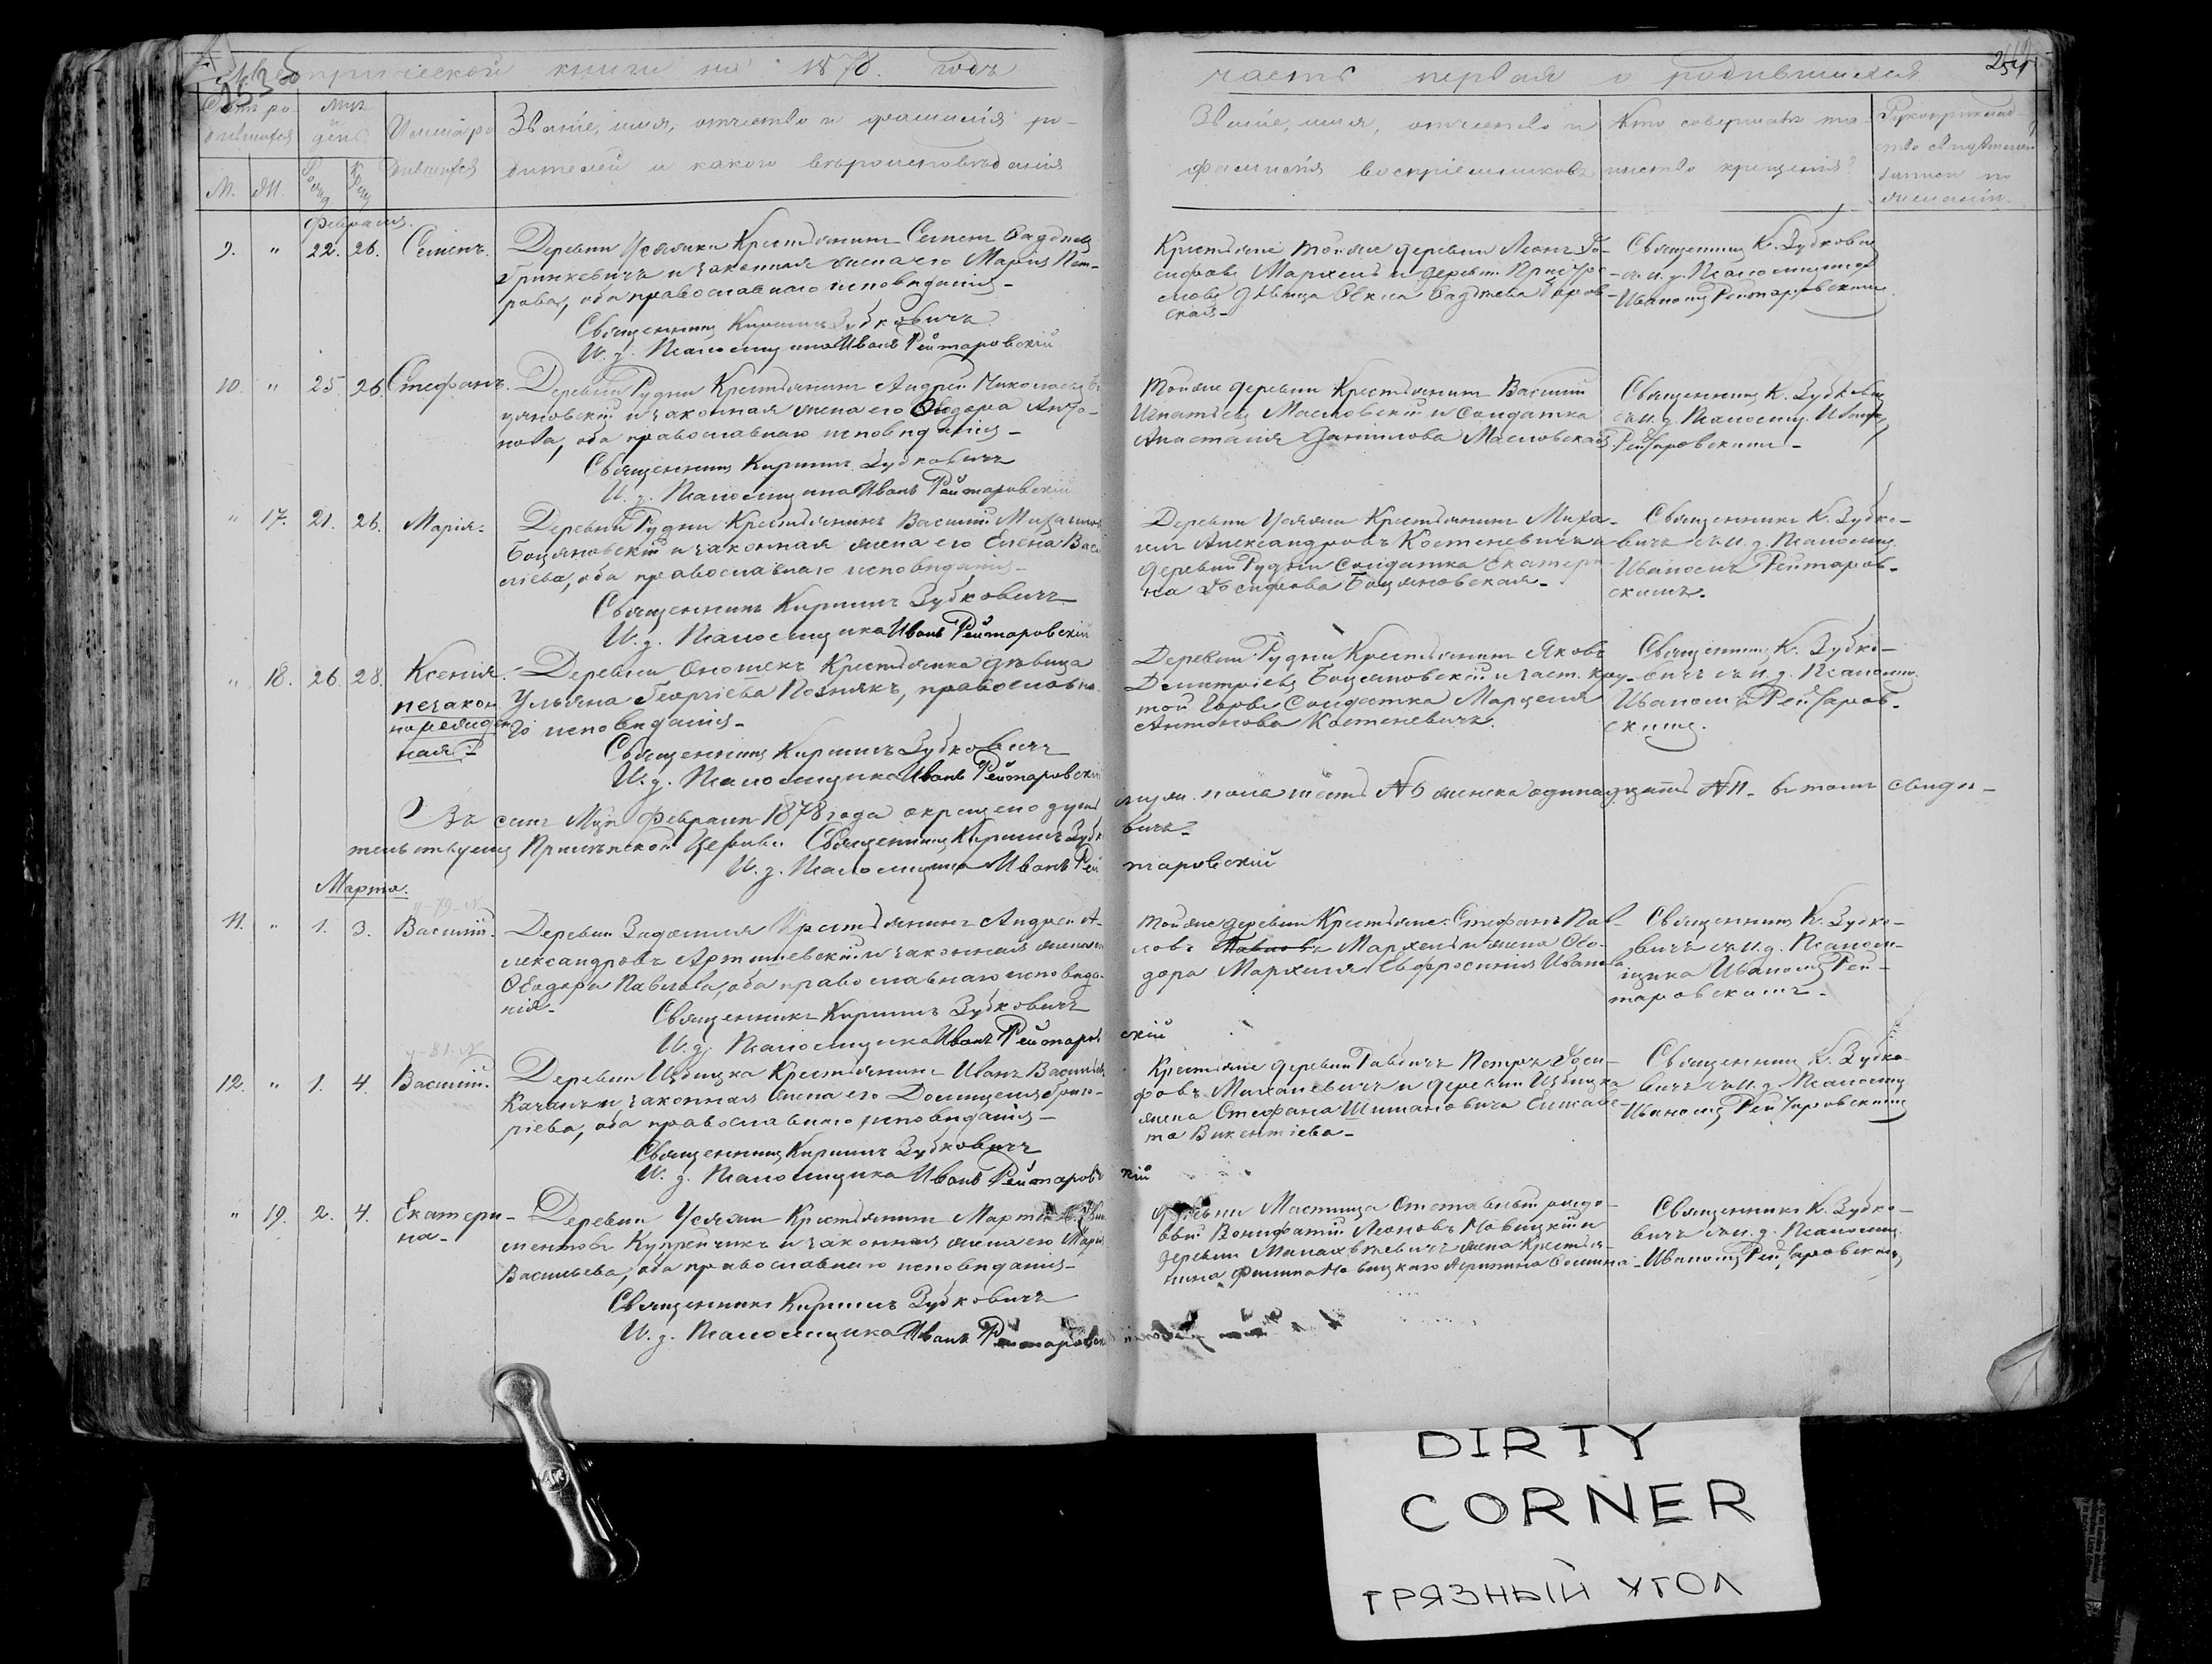 Метрической книги на 1878. годъ
часть первая о родившихся
Счетъ ро
дившихся
М. Ж.
Мцъ
и
день
Имена ро
дившихся
Званіе, имя, отчество и фамилія ро-
дителей и какого вѣроисповѣданія
Званіе, имя, отчество и
фамилія воспріемниковъ
Кто совершалъ та-
инство крещенія?
Рукоприклад-
ство свидѣтелей
записи по
желанію.
Февраля.
9. " 22. 26. Семенъ.
Деревни Усяжи Крестьянинъ Семенъ
Гринкевичъ и законная жена его Марія Пет-
рова, оба православнаго исповѣданія-
Священникъ Кириллъ Зубковичъ
И. д. Псаломщика Иванъ Рейтаровскій
Крестьяне тойже деревни Леонъ Іо-
сифовъ Мархель и деревни
дѣвица
ская-
Священникъ К. Зубковичъ
съ и. д. Псаломщика
Иваномъ Рейтаровскимъ
10. " 25 26. Стефанъ.
Деревни Рудни Крестьянинъ Андрей Николаевъ Бо
цяновскій и законная жена его Ѳеодора Анто-
нова, оба православнаго исповѣданія-
Священникъ Кириллъ Зубковичъ
И. д. Псаломщика Иванъ Рейтаровскій
тойже деревни Крестьянинъ Василій
Игнатьевъ Масловскій и Солдатка
Анастасія Даниилова Масловская
Священникъ К. Зубковичъ
съ и. д. Псаломщ. Иваномъ
Рейтаровскимъ-
" 17. 21. 26. Марія-
Деревни Рудни Крестьянинъ Василій Михайловъ
Боцяновскій и законная жена его Елена Васи
ліева, оба православнаго исповѣданія-
Священникъ Кириллъ Зубковичъ
И. д. Псаломщика Иванъ Рейтаровскій
Деревни Усяжи Крестьянинъ Миха-
илъ Александровъ Костеневичъ и
деревни Рудни Солдатка Екатери-
на Іосифова Боцяновская-
Священникъ К. Зубко-
вичъ съ и. д. Псаломщ.
Иваномъ Рейтаров-
скимъ-
" 18. 26. 28. Ксенія.
незакон
норожден
ная-
Деревни Оношекъ Крестьянка дѣвица
Ульяна Георгіева Познякъ, православна-
го исповѣданія-
Священникъ Кириллъ Зубковичъ
И. д. Псаломщика Иванъ Рейтаровскій
Деревни Рудни Крестьянинъ Яковъ
Димитріевъ Боцяновскій и заст. Кру-
той Горы Солдатка Марцеля
Антонова Костеневичъ.
Священникъ К. Зубко-
вичъ съ и. д. Псаломщ.
Иваномъ Рейтаров-
скимъ.
Въ семъ Мцѣ Февралѣ 1878 года окрещено душъ муж. пола шесть №6 женска одинадцать №11- въ томъ свидѣ-
тельствуемъ Церкви Священникъ Кириллъ Зубковичъ-
И. д. Псаломщика Иванъ Рейтаровскій
Марта.
11. " 1. 3. Василій.
Деревни Крестьянинъ Андрей А-
лександровъ Артишевскій и законная жена его
Ѳеодора Павлова, оба православнаго исповѣда-
нія-
Священникъ Кириллъ Зубковичъ
И. д. Псаломщика Иванъ Рейтаровскій
тойже деревни Крестьяне: Стефанъ Пав-
ловъ Павловъ Мархель и жена Ѳео-
дора Мархеля Евфросинія Иванова
Священникъ К. Зубко-
вичъ съ и. д. Псалом-
щика Иваномъ Рей-
таровскимъ-
12. " 1. 4. Василій.
Деревни Избицка Крестьянинъ Иванъ Васильевъ
Качанъ и законная жена его Домицеля Григо-
ріева, оба православнаго исповѣданія-
Священникъ Кириллъ Зубковичъ
И. д. Псаломщика Иванъ Рейтаровскій
Крестьяне деревни Равбичъ Петръ Іоси-
фовъ Михалевичъ и деревни Избицка
жена Стефана Шимановича Елисаве-
та Викентіева-
Священникъ К. Зубко-
вичъ съ и. д. Псаломщ.
Иваномъ Рейтаровскимъ
" 19. 2. 4. Екатери-
на-
Деревни Усяжи Крестьянинъ
ментовъ Купрейчикъ и законная жена его Марія
Васильева, оба православнаго исповѣданія-
Священникъ Кириллъ Зубковичъ
И. д. Псаломщика Иванъ Рейтаровскій
деревни Мостища Отставный рядо-
вый Вонифатій Леоновъ Новицкій и
деревни жена Крестья-
нина Филипа Новицкаго Агрипина
Священникъ К. Зубко-
вичъ съ и. д. Псаломщ.
Иваномъ Рейтаровскимъ
DIRTY
CORNER
ГРЯЗНЫЙ УГОЛ